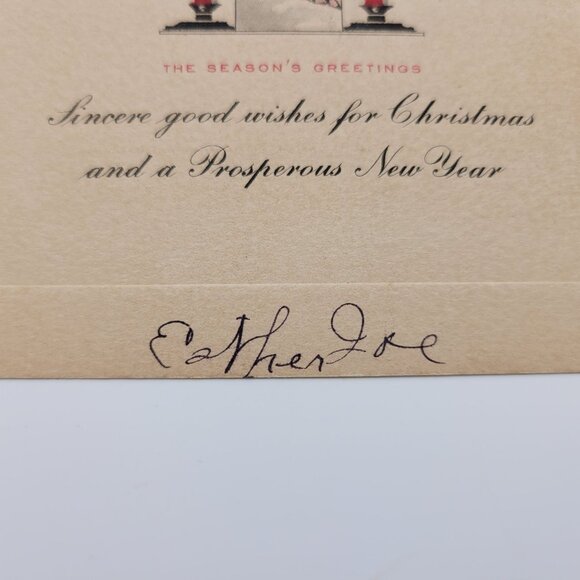 THE SEASON'S GREETINGS
Sincere good wishes for Christmas
and a Prosperous New Year
Esther Joe